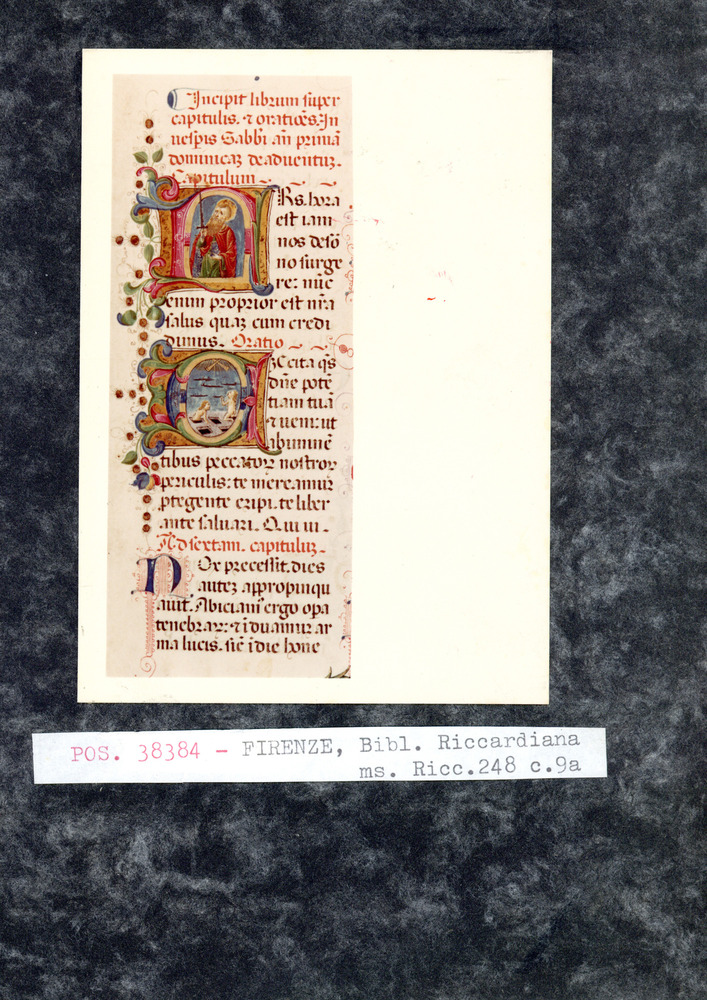 Incipit librum super
capitulis. ⁊ oratiões. In
uesp̃is Sabb̃i añ primã
dominicaꝫ de aduentuꝫ.
Capitulum
Rs. hora
est iam
nos de sõ
no surge
re: nũc
enim proprior est nr̃a
salus quaꝫ cum credi
dimus. Oratio
xcita q̃s
dñe potẽ
tiam tuã
⁊ ueni: ut
ab iminẽ
tibus peccatoꝝ nostroꝝ
periculis: te mereamur
ꝓtegente eripi. te liber
ante saluari. Q. ui ui.
Ad sextam. capituluꝫ
Nox precessit. dies
auteꝫ appropinqu
auit. Abiciam᷒ ergo opa
tenebraꝝ: ⁊ iduamur ar
ma lucis. sic̃ i die hone
POS. 38384 - FIRENZE, Bibl. Riccardiana
ms. Ricc.248 c.9a